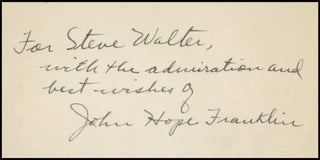 For Steve Walter,
with the admiration and
best wishes of
John Hope Franklin